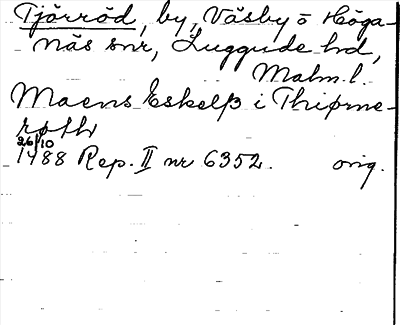 Tjörröd, by, Väsby o Höga-
näs snr, Luggude hd,
Malm.l.
Maens Eskelß i Thiørne-
røth
26/10
1488 Rep. II nr 6352. orig.